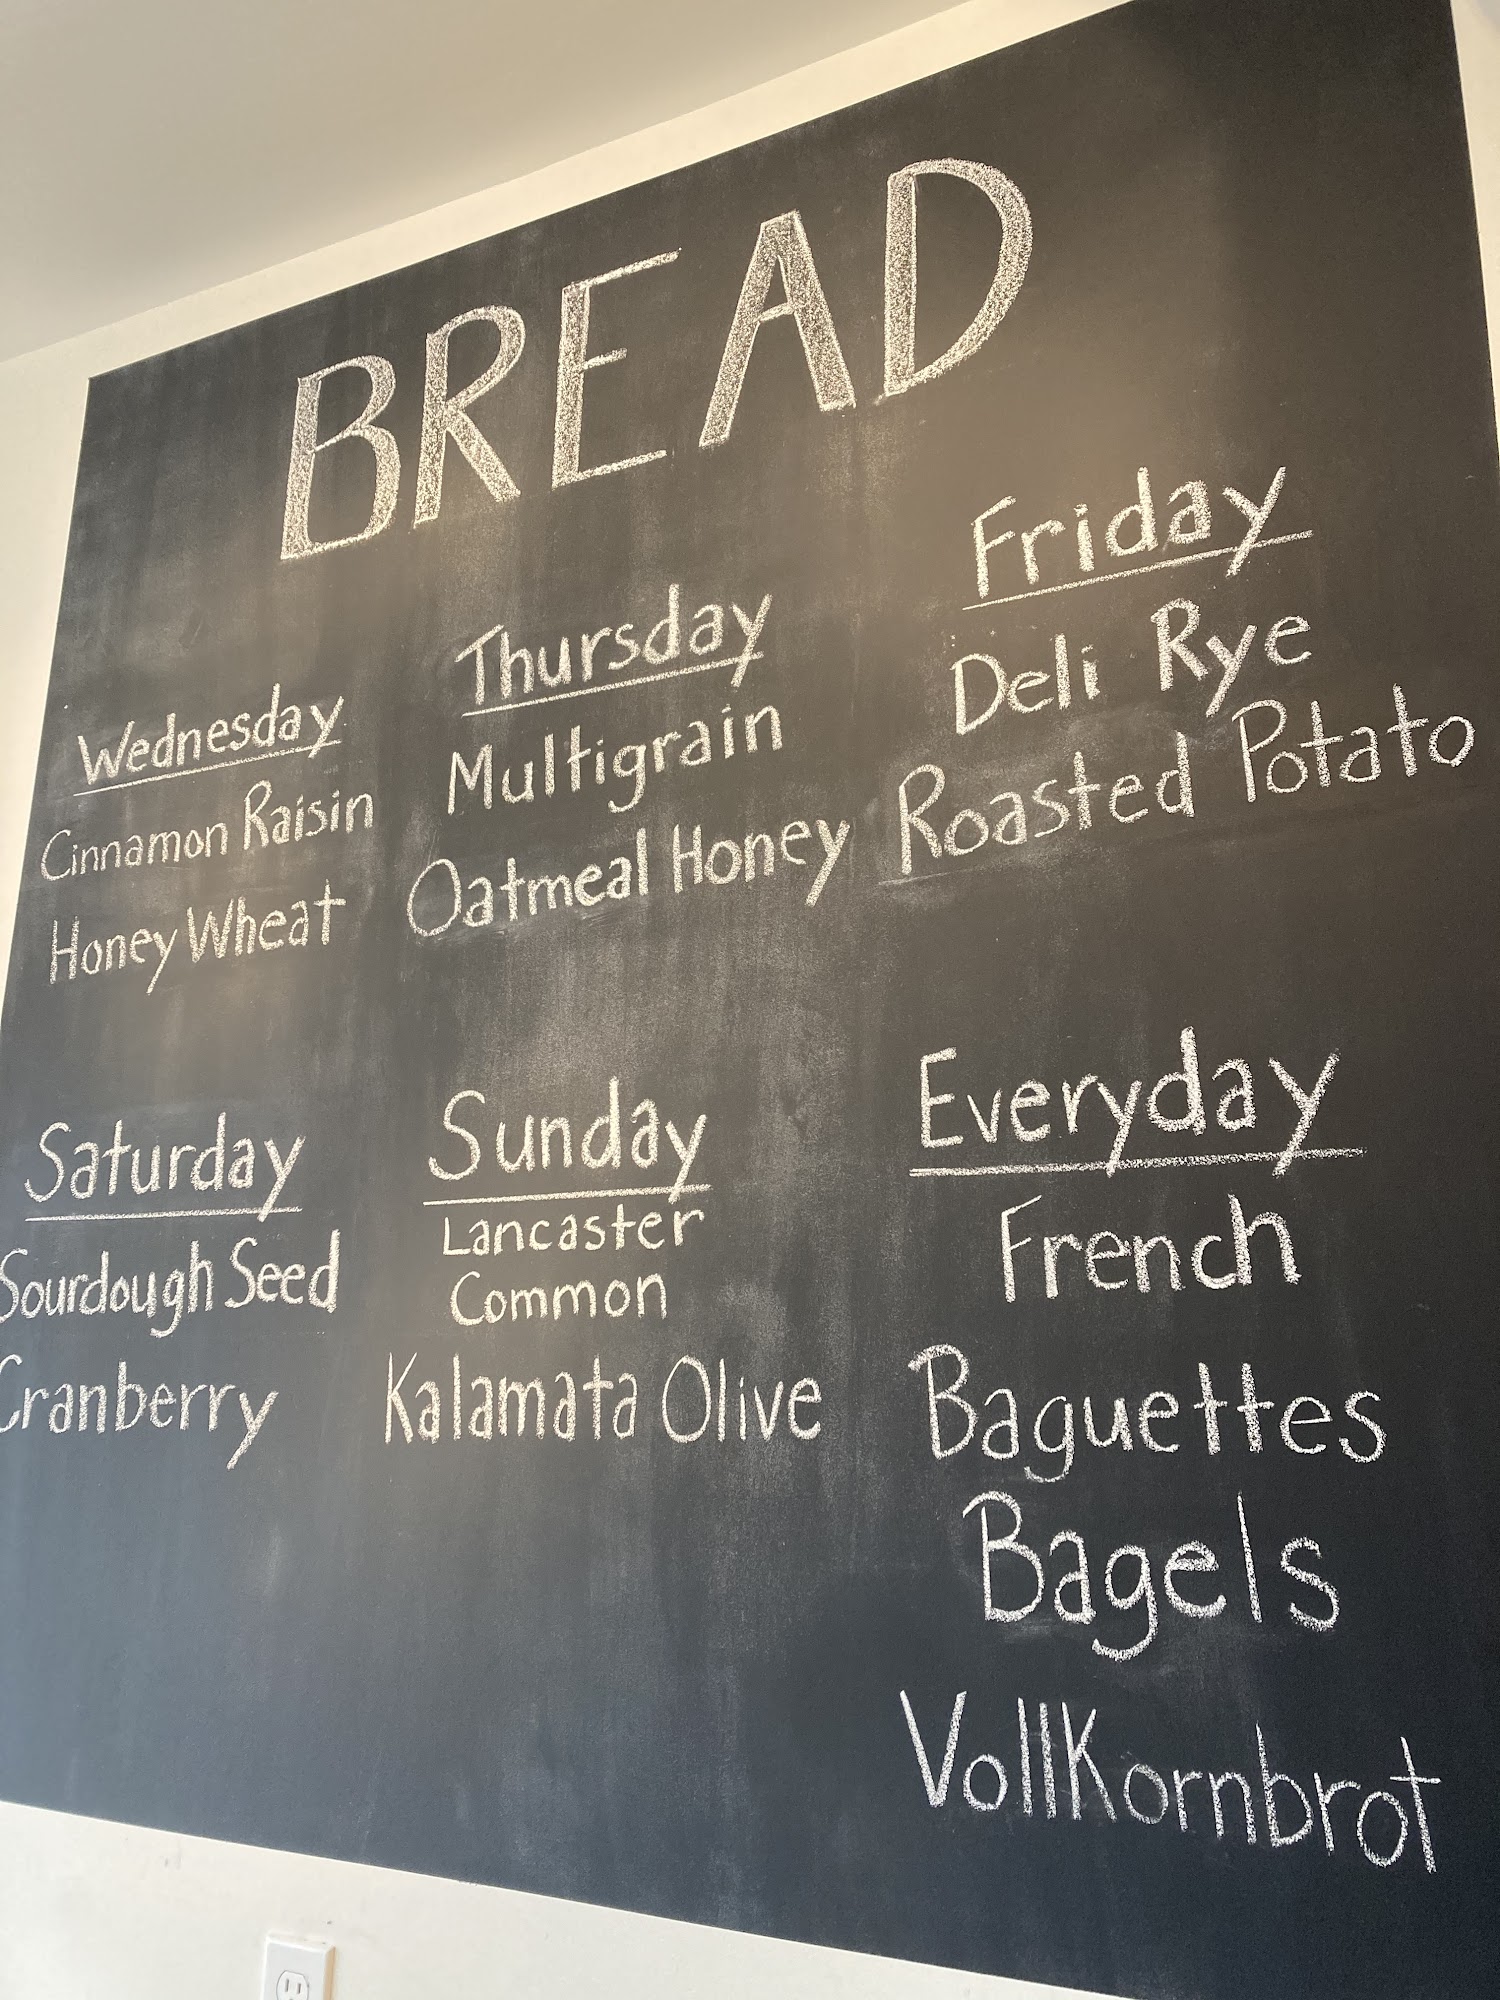 BREAD
Wednesday
Cinnamon Raisin
Honey Wheat
Thursday
Multigrain
Oatmeal Honey
Friday
Deli Rye
Roasted Potato
Saturday
Sourdough Seed
Cranberry
Sunday
Lancaster
Common
Kalamata Olive
Everyday
French
Baguettes
Bagels
VollKornbrot